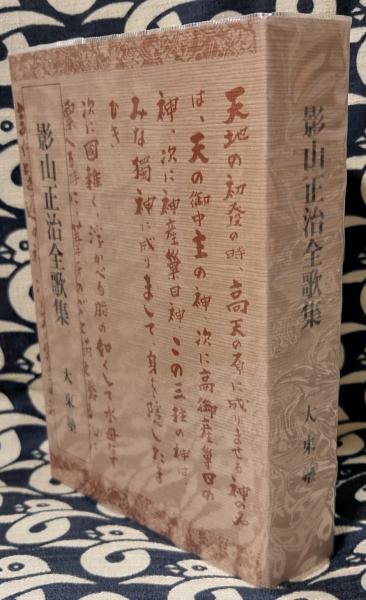 天地の初發の時、高天の原に成りませる神のみ
は、天の御中主の神、次に高御産巣日の
神、次に神産巣日神、この三柱の神は
みな獨神に成りまして、身を隠したま
ひき
次に國稚く、浮かべる脂の如くして水母なす
影山正治全歌集
大東塾
影山正治全歌集
大東塾